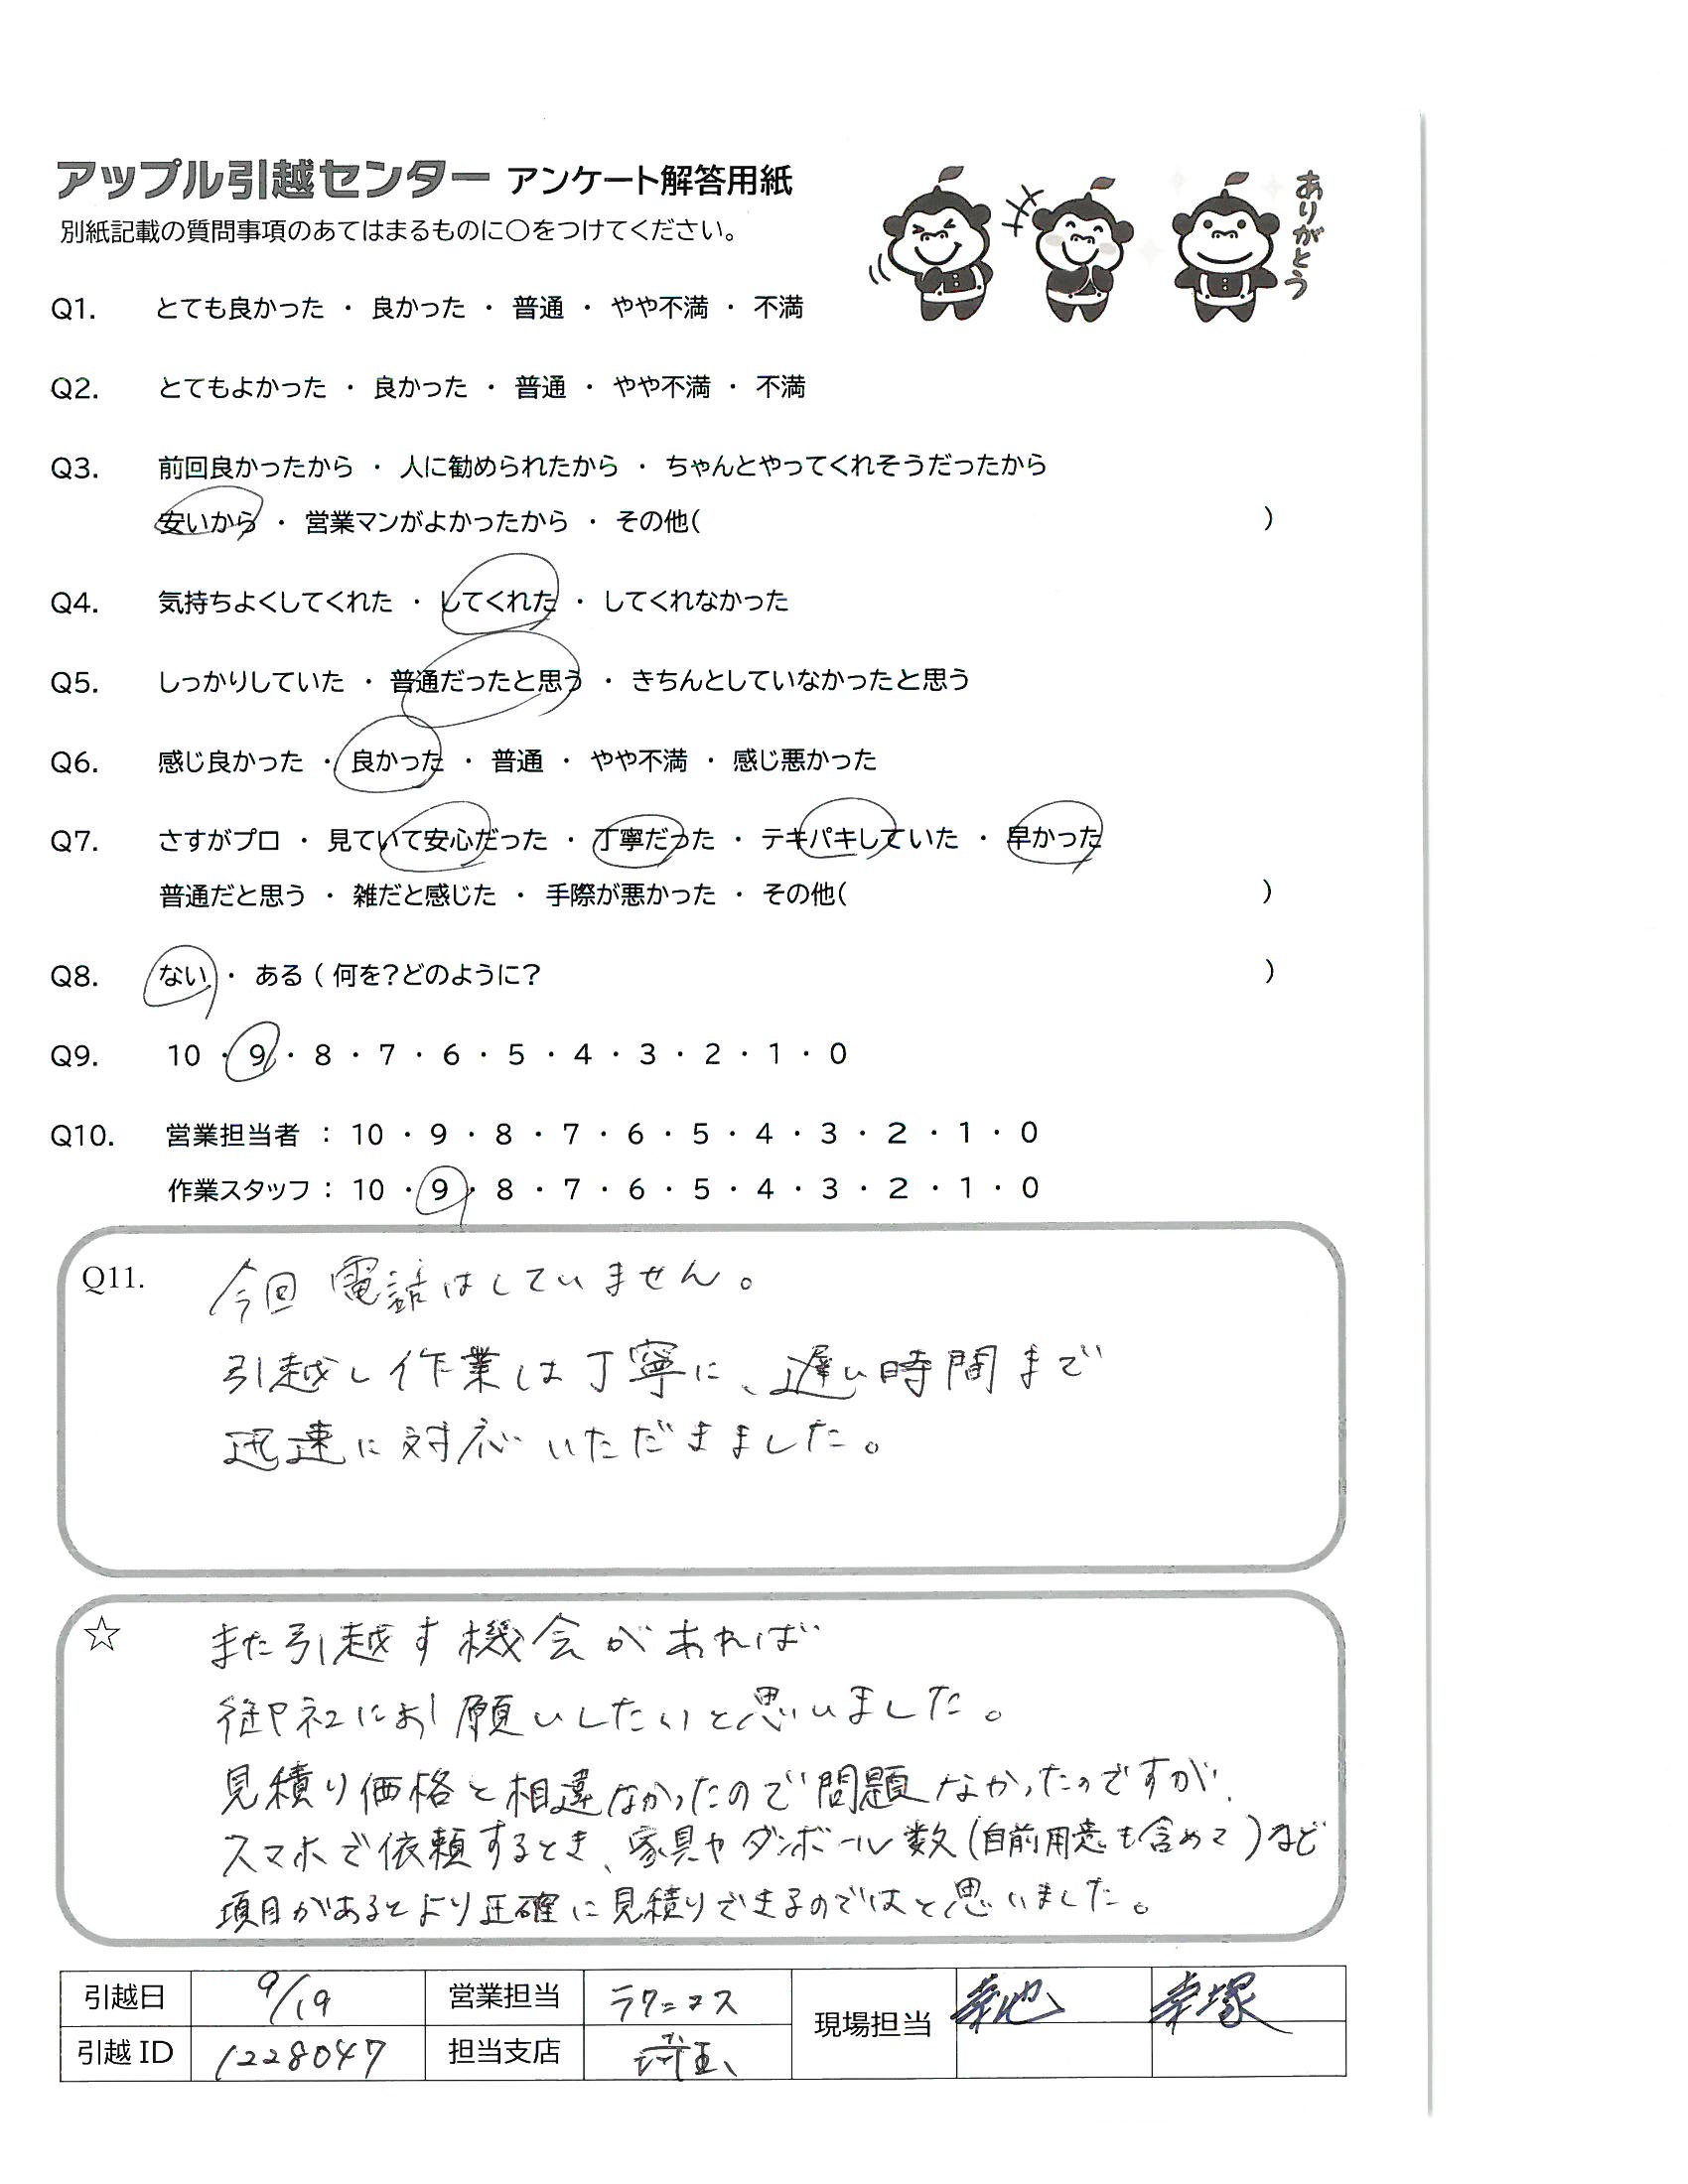 アップル引越センター アンケート解答用紙
ありがとう
別紙記載の質問事項のあてはまるものに○をつけてください。
Q1. とても良かった ・ 良かった ・ 普通 ・ やや不満 ・ 不満
Q2. とてもよかった ・ 良かった ・ 普通 ・ やや不満 ・ 不満
Q3. 前回良かったから ・ 人に勧められたから ・ ちゃんとやってくれそうだったから
安いから ・ 営業マンがよかったから ・ その他( )
Q4. 気持ちよくしてくれた ・ してくれた ・ してくれなかった
Q5. しっかりしていた ・ 普通だったと思う ・ きちんとしていなかったと思う
Q6. 感じ良かった ・ 良かった ・ 普通 ・ やや不満 ・ 感じ悪かった
Q7. さすがプロ ・ 見ていて安心だった ・ 丁寧だった ・ テキパキしていた ・ 早かった
普通だと思う ・ 雑だと感じた ・ 手際が悪かった ・ その他( )
Q8. ない ・ ある ( 何を?どのように? )
Q9. 10 ・ 9 ・ 8 ・ 7 ・ 6 ・ 5 ・ 4 ・ 3 ・ 2 ・ 1 ・ 0
Q10. 営業担当者 : 10 ・ 9 ・ 8 ・ 7 ・ 6 ・ 5 ・ 4 ・ 3 ・ 2 ・ 1 ・ 0
作業スタッフ : 10 ・ 9 ・ 8 ・ 7 ・ 6 ・ 5 ・ 4 ・ 3 ・ 2 ・ 1 ・ 0
Q11. 今回 電話はしていません。
引越し作業は丁寧に、遅い時間まで
迅速に対応いただきました。
☆ また引越す機会があれば
御社にお願いしたいと思いました。
見積り価格と相違なかったので問題なかったのですが、
スマホで依頼するとき、家具やダンボール数(自前用意も含めて)など
項目があるとより正確に見積りできるのではと思いました。
引越日 9/19 営業担当 ラクニコス 現場担当
引越ID 1228047 担当支店 埼玉